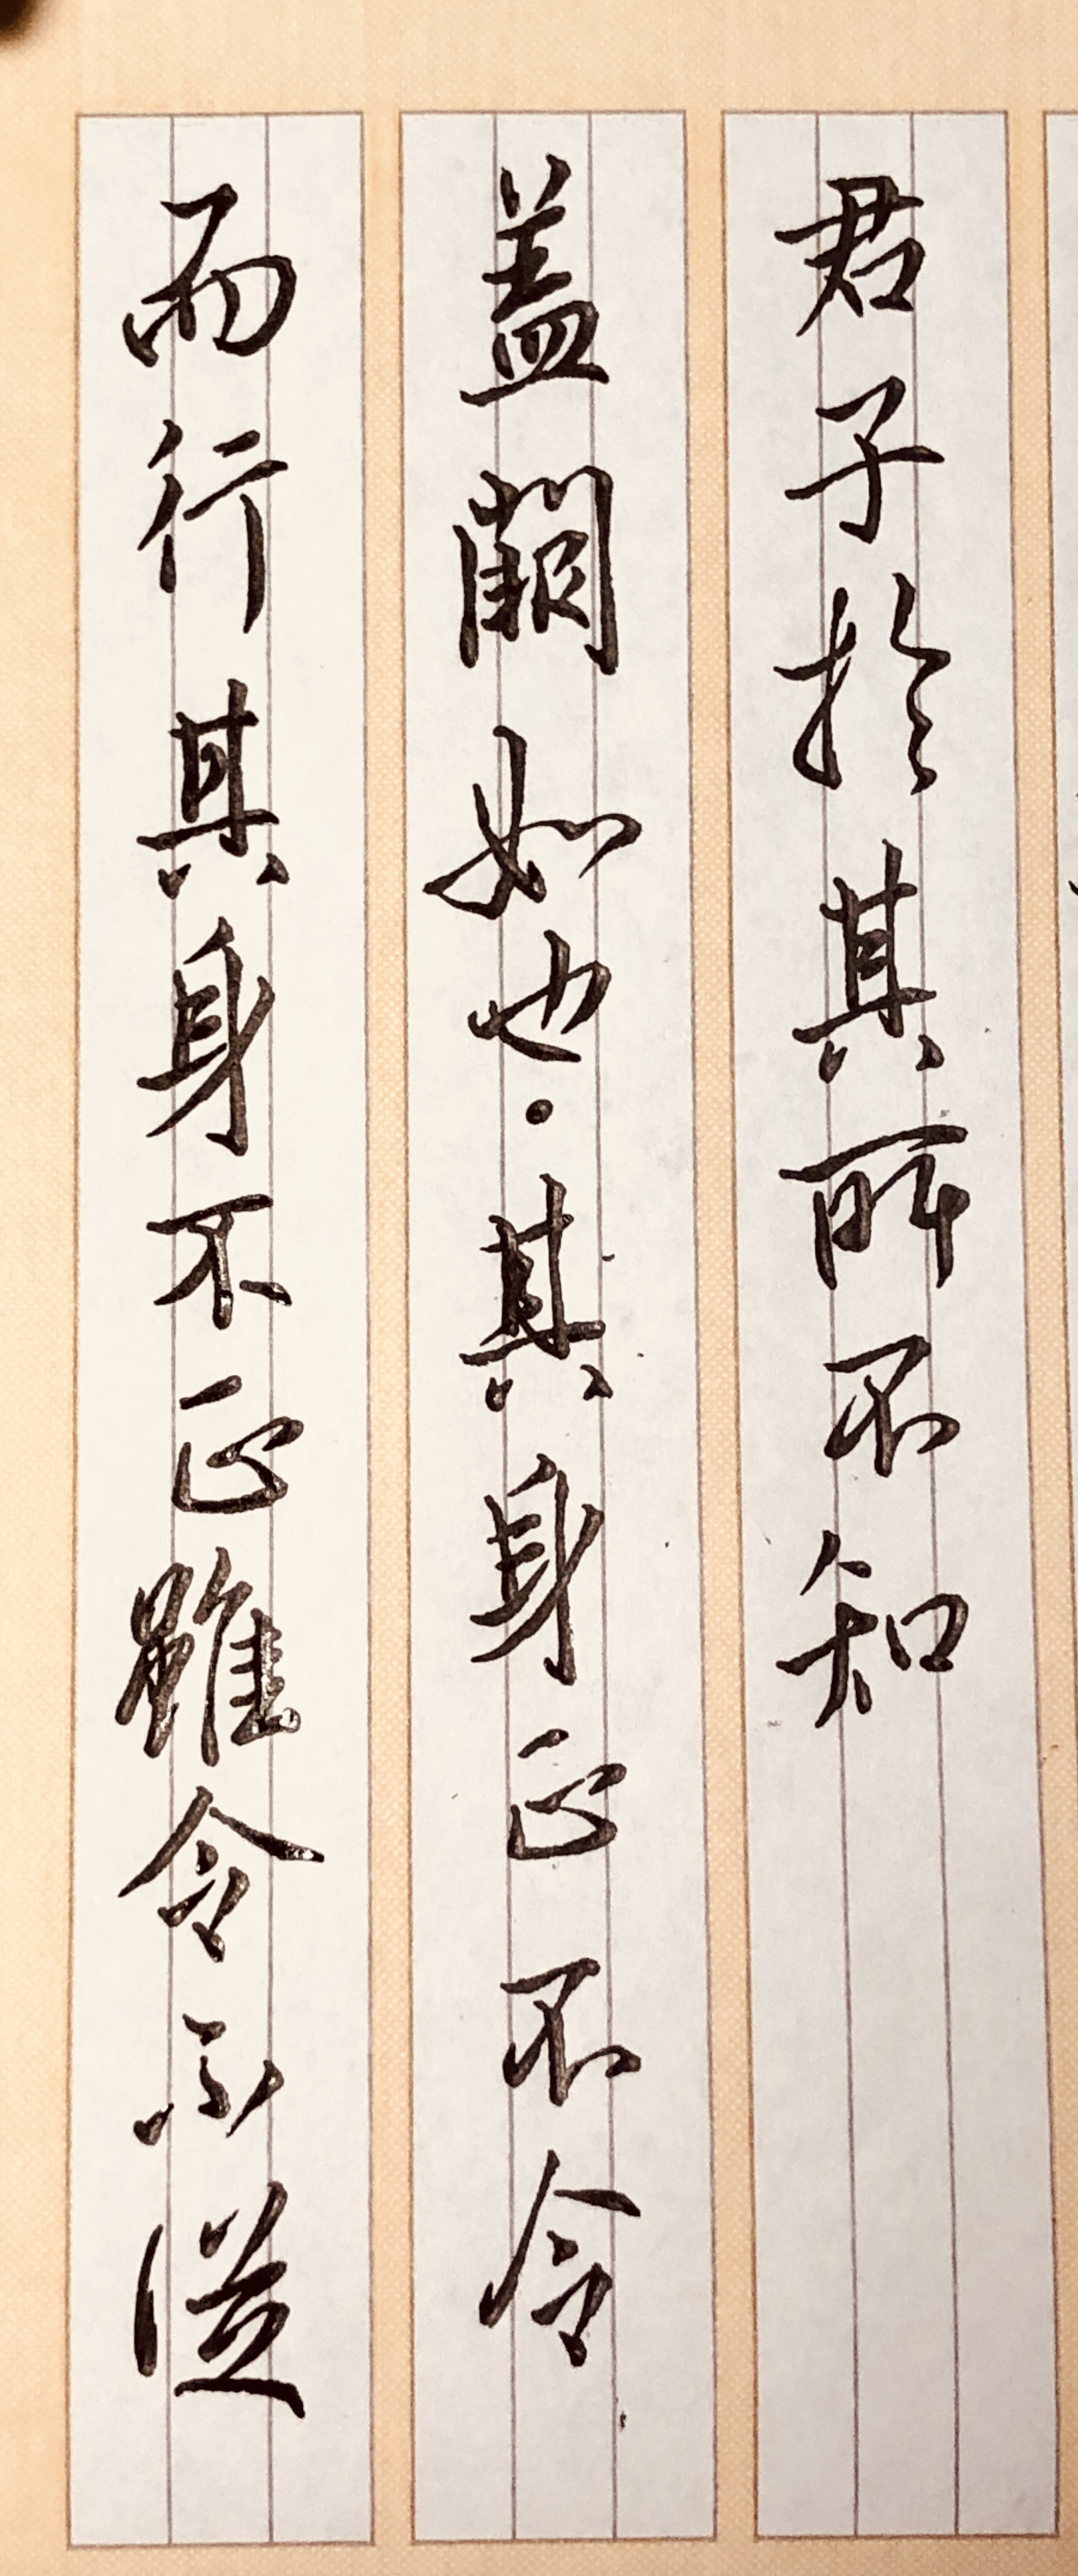 君子於其所不知
蓋闕如也·其身正不令
而行其身不正雖令不從